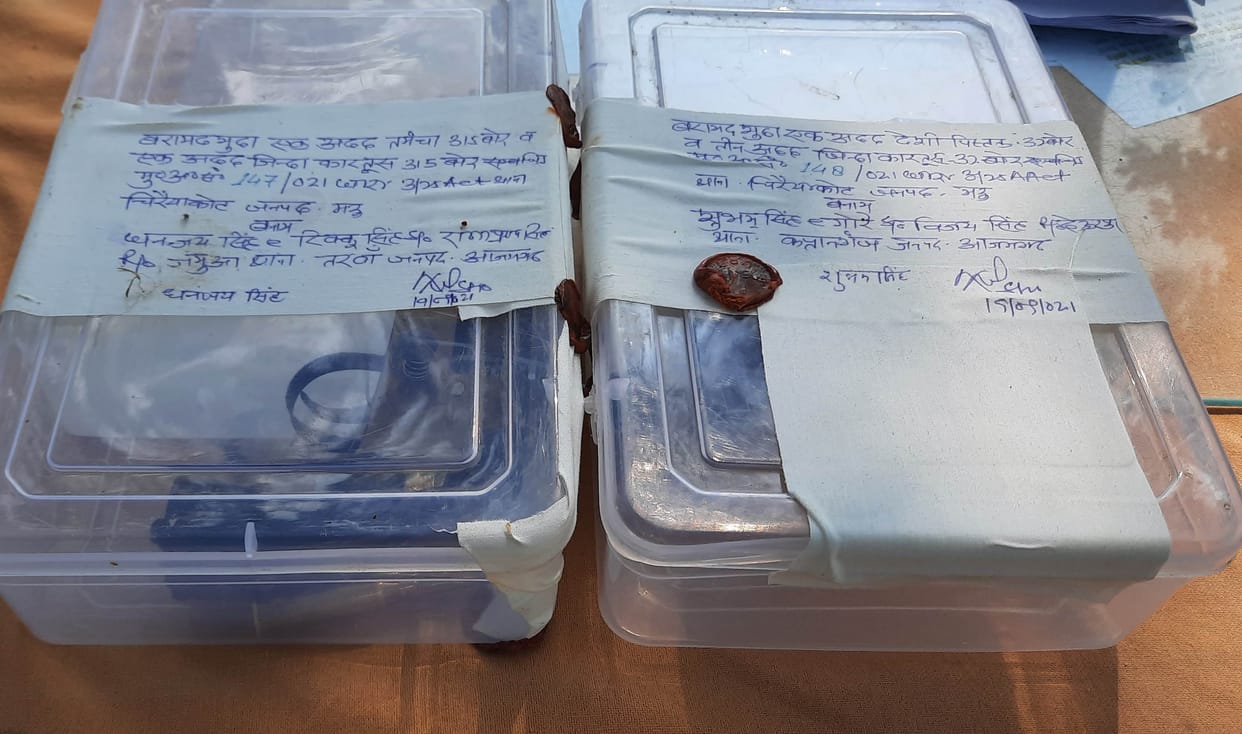 बरामद शुदा एक अदद तमंचा 315 बोर व
एक अदद जिन्दा कारतूस 315 बोर सम्बन्धित
मु0अ0सं0 147/021 धारा 3/25 Act थाना
चिरैयाकोट जनपद- मऊ
बनाम
धनन्जय सिंह e रिक्कू सिंह S/o
R/o थाना- तरवां जनपद- आजमगढ
धनजय सिंह
19/09/021
बरामद शुदा एक अदद देशी पिस्टल .32 बोर
व तीन अदद जिन्दा कारतूस .32 बोर सम्बन्धित
मु0अ0सं0 148/021 धारा 3/25 A Act
थाना- चिरैयाकोट जनपद- मऊ
बनाम
शुभम सिंह e गोरे S/o विजय सिंह
थाना- जनपद- आजमगढ
शुभम सिंह
19/09/021